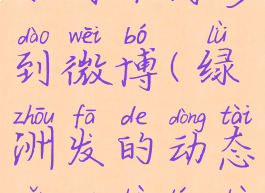 dào wēi bó lǜ
到微博(绿
zhōu fā de dòng tài
洲发的动态